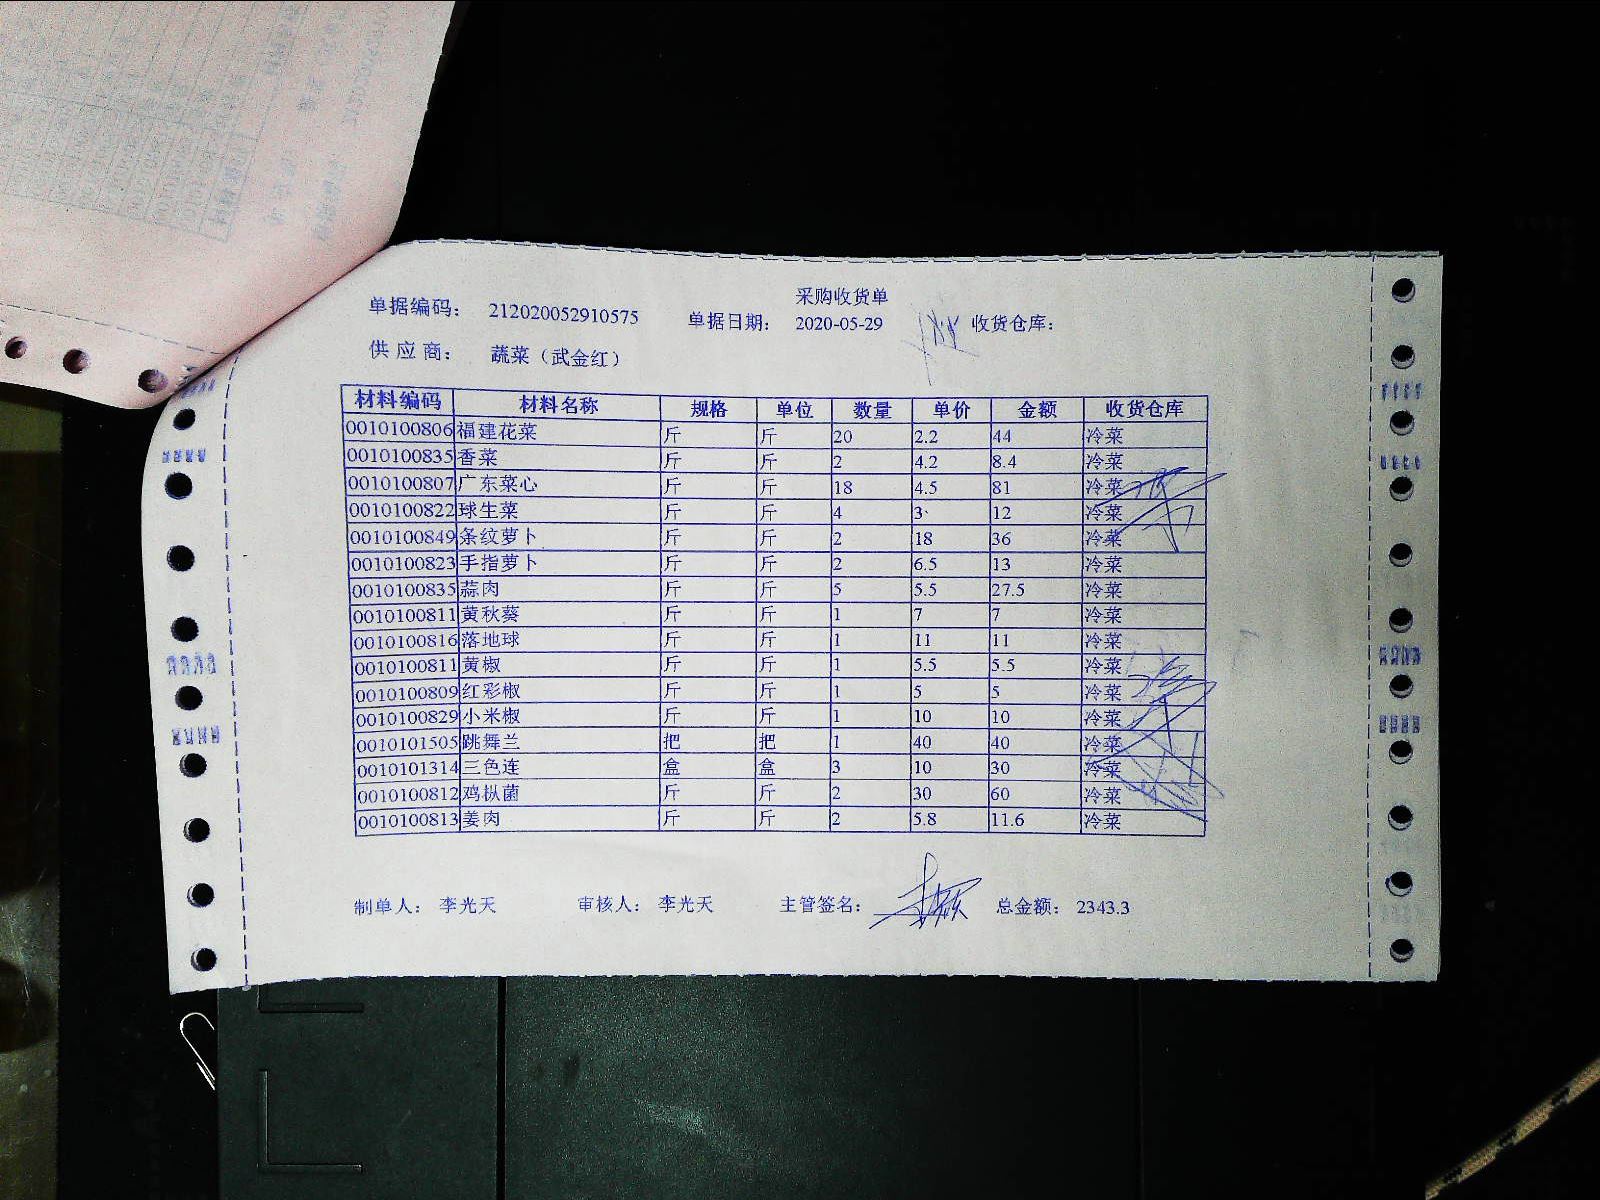 采购收货单
单据编码： 212020052910575 单据日期： 2020-05-29 收货仓库：
供 应 商： 蔬菜（武金红）
材料编码 材料名称 规格 单位 数量 单价 金额 收货仓库
0010100806 福建花菜 斤 斤 20 2.2 44 冷菜
0010100835 香菜 斤 斤 2 4.2 8.4 冷菜
0010100807 广东菜心 斤 斤 18 4.5 81 冷菜
0010100822 球生菜 斤 斤 4 3 12 冷菜
0010100849 条纹萝卜 斤 斤 2 18 36 冷菜
0010100823 手指萝卜 斤 斤 2 6.5 13 冷菜
0010100835 蒜肉 斤 斤 5 5.5 27.5 冷菜
0010100811 黄秋葵 斤 斤 1 7 7 冷菜
0010100816 落地球 斤 斤 1 11 11 冷菜
0010100811 黄椒 斤 斤 1 5.5 5.5 冷菜
0010100809 红彩椒 斤 斤 1 5 5 冷菜
0010100829 小米椒 斤 斤 1 10 10 冷菜
0010101505 跳舞兰 把 把 1 40 40 冷菜
0010101314 三色连 盒 盒 3 10 30 冷菜
0010100812 鸡枞菌 斤 斤 2 30 60 冷菜
0010100813 姜肉 斤 斤 2 5.8 11.6 冷菜
制单人： 李光天 审核人： 李光天 主管签名： 总金额： 2343.3